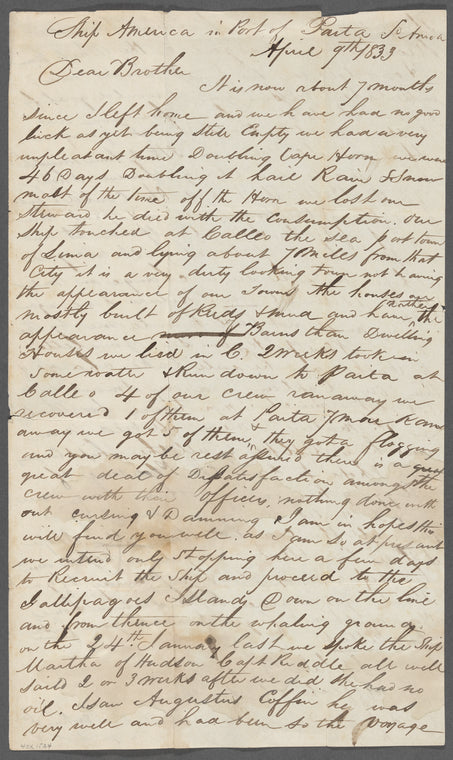 Ship America in Port of Paita So America
April 9th 1833
Dear Brother
It is now about 7 months
since I left home and we have had no good
luck as yet being Still Empty we had a very
unpleasant time Doubling Cape Horn we were
46 Days Doubling it hail Rain & Snow
most of the time off the Horn we lost our
Steward he died with the Consumption. Our
Ship touched at Calleo the sea port town
of Lima and lying about 7 Miles from that
City it is a very dirty looking Town not having
the appearance of our Towns the houses are
mostly built of Reeds & mud and have rather the
appearance of Barns than Dwelling
Houses we lied in C. 2 weeks took in
Some water & Run down to Paita at
Calleo 4 of our crew ran away we
recovered 1 of them at Paita 7 more Ran
away we got 5 of them & they got a flogging
and you may be rest assured there is a great
great deal of Dissatisfaction among the
Crew with their Officers, nothing done with
out cursing & Damning & I am in hopes this
will find you well. as I am so at present
we intend only Stopping here a few days
to Recruit the Ship and proceed to the
Gallipagoes Islands Down on the line
and from thence on the whaling ground
on the 24th January last we spoke the Ship
Martha of Hudson Capt Riddle all well
said 2 or 3 weeks after we did She had no
oil. I saw Augustus Coffin he was
very well and had been so the voyage